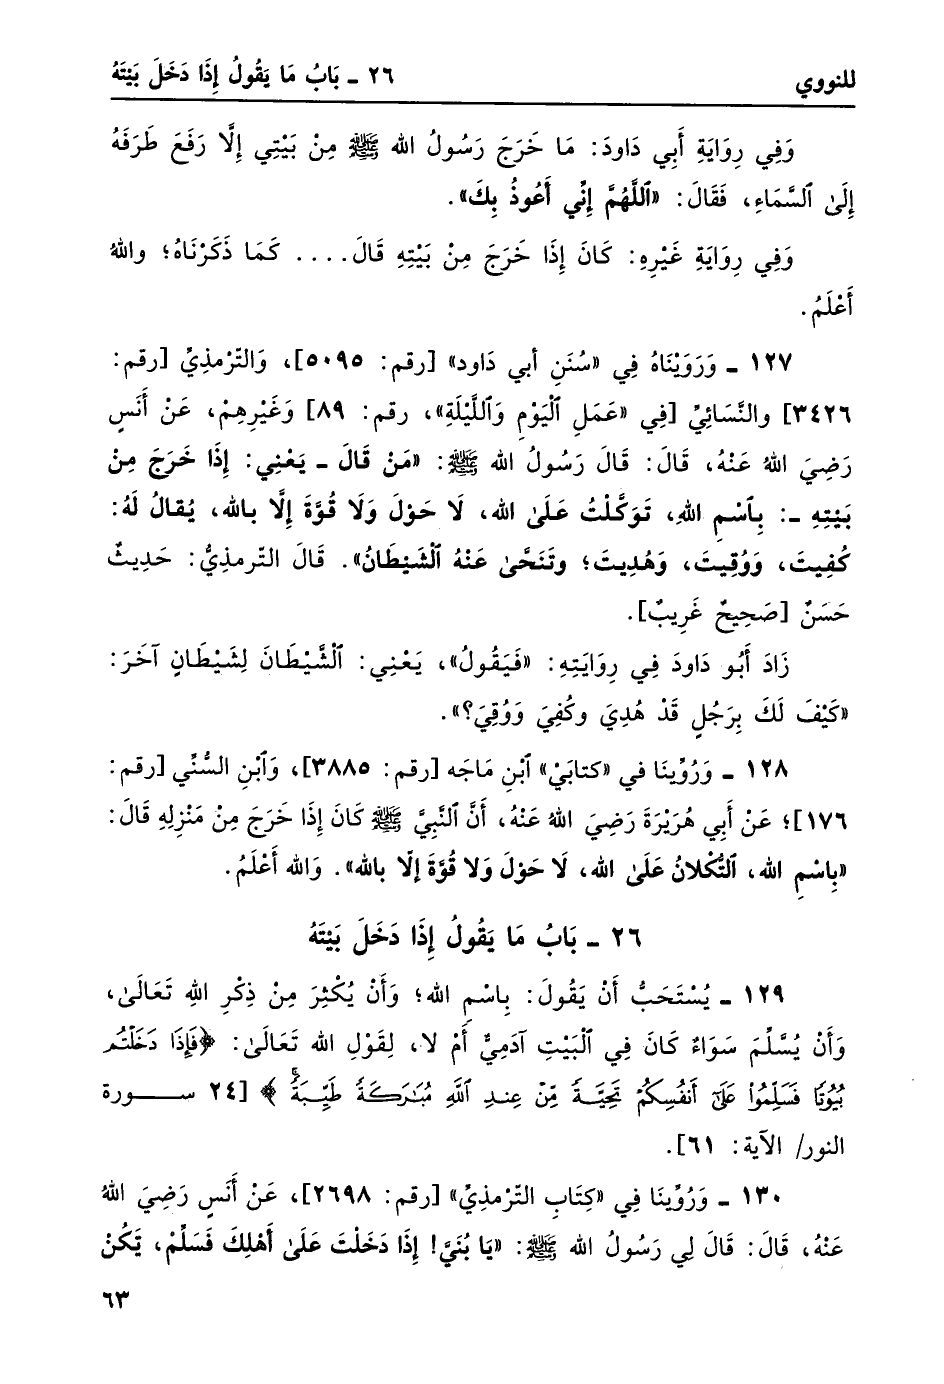 للنووي ٢٦ - بَابُ مَا يَقُولُ إِذَا دَخَلَ بَيْتَهُ
وَفِي رِوَايَةِ أَبِي دَاودَ: مَا خَرَجَ رَسُولُ الله ﷺ مِنْ بَيْتِي إِلَّا رَفَعَ طَرَفَهُ
إِلَىٰ ٱلسَّمَاءِ، فَقَالَ: «ٱللَّهُمَّ إِنِّي أَعُوذُ بِكَ».
وَفِي رِوَايَةِ غَيْرِهِ: كَانَ إِذَا خَرَجَ مِنْ بَيْتِهِ قَالَ.... كَمَا ذَكَرْنَاهُ؛ واللهُ
أَعْلَمُ.
١٢٧ - وَرَوَيْنَاهُ فِي «سُنَنِ أبي دَاود» [رقم: ٥٠٩٥]، وَالتّرْمذِيِّ [رقم:
٣٤٢٦] والنَّسَائِيِّ [فِي «عَمَلِ ٱلْيَوْمِ وَٱللَّيْلَةِ»، رقم: ٨٩] وَغَيْرِهِمْ، عَنْ أَنَسٍ
رَضِيَ اللهُ عَنْهُ، قَالَ: قَالَ رَسُولُ الله ﷺ: «مَنْ قَالَ - يَعْنِي: إِذَا خَرَجَ مِنْ
بَيْتِهِ -: بِٱسْمِ اللهِ، تَوَكَّلْتُ عَلَىٰ الله، لَا حَوْلَ وَلَا قُوَّةَ إِلَّا بالله، يُقالُ لَهُ:
كُفِيتَ، وَوُقِيتَ، وَهُدِيتَ؛ وتَنَحَّىٰ عَنْهُ ٱلْشَيْطَانُ». قَالَ التّرمذِيُّ: حَدِيثٌ
حَسَنٌ [صَحِيحٌ غَرِيبٌ].
زَادَ أَبُو دَاودَ فِي رِوَايَتِهِ: «فَيَقُولُ»، يَعْنِي: ٱلْشَّيْطَانَ لِشَيْطَانٍ آخَرَ:
«كَيْفَ لَكَ بِرَجُلٍ قَدْ هُدِيَ وكُفِيَ وَوُقِيَ؟».
١٢٨ - وَرُوِّينَا في «كتابَيْ» ٱبْنِ مَاجَه [رقم: ٣٨٨٥]، وَٱبْنِ السُّنِّي [رقم:
١٧٦]؛ عَنْ أَبِي هُرَيْرَةَ رَضِيَ اللهُ عَنْهُ، أَنَّ ٱلنَّبِيَّ ﷺ كَانَ إِذَا خَرَجَ مِنْ مَنْزِلِهِ قَالَ:
«بِاسْمِ الله، ٱلتُّكْلَانُ عَلَىٰ الله، لَا حَوْلَ وَلا قُوَّةَ إلّا بالله». وَالله أَعْلَمُ.
٢٦ - بَابُ مَا يَقُولُ إِذَا دَخَلَ بَيْتَهُ
١٢٩ - يُسْتَحَبُّ أَنْ يَقُولَ: بِاسْمِ الله؛ وَأَنْ يُكْثِرَ مِنْ ذِكْرِ اللهِ تَعَالَىٰ،
وَأَنْ يُسَلِّمَ سَوَاءٌ كَانَ فِي ٱلْبَيْتِ آدَمِيٌّ أَمْ لا، لِقَوْلِ الله تَعَالَىٰ: ﴿فَإِذَا دَخَلْتُم
بُيُوتًا فَسَلِّمُوا۟ عَلَىٰٓ أَنفُسِكُمْ تَحِيَّـةً مِّنْ عِندِ ٱللَّهِ مُبَـٰرَكَةً طَيِّـبَةً ۚ ﴾ [٢٤ ســـورة
النور/ الآية: ٦١].
١٣٠ - وَرُوِّينَا في «كِتَابِ التّرْمذِيِّ» [رقم: ٢٦٩٨]، عَنْ أَنَسٍ رَضِيَ اللهُ
عَنْهُ، قَالَ: قَالَ لِي رَسُولُ الله ﷺ: «يَا بُنَيَّ! إِذَا دَخَلْتَ عَلَىٰ أَهْلِكَ فَسَلِّمْ، يَكُنْ
٦٣